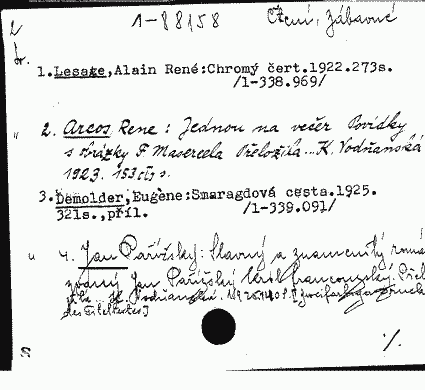 2 1-88158 Čtení, zábavné
1. Lesage, Alain René: Chromý čert. 1922. 273s.
/1-338.969/
" 2. Arcos Rene: Jednou na večer Povídky
s obrázky F Masereela Přeložila... K. Vodňanská
1923. 153 s.
3. Demolder, Eugène: Smaragdová cesta. 1925.
321s., příl. /1-339.091/
" 4. Jan Pařížský: Slavný a znamenitý romá
zvaný Jan Pařížský král francouzský. Přel
des Titelblattes]
S